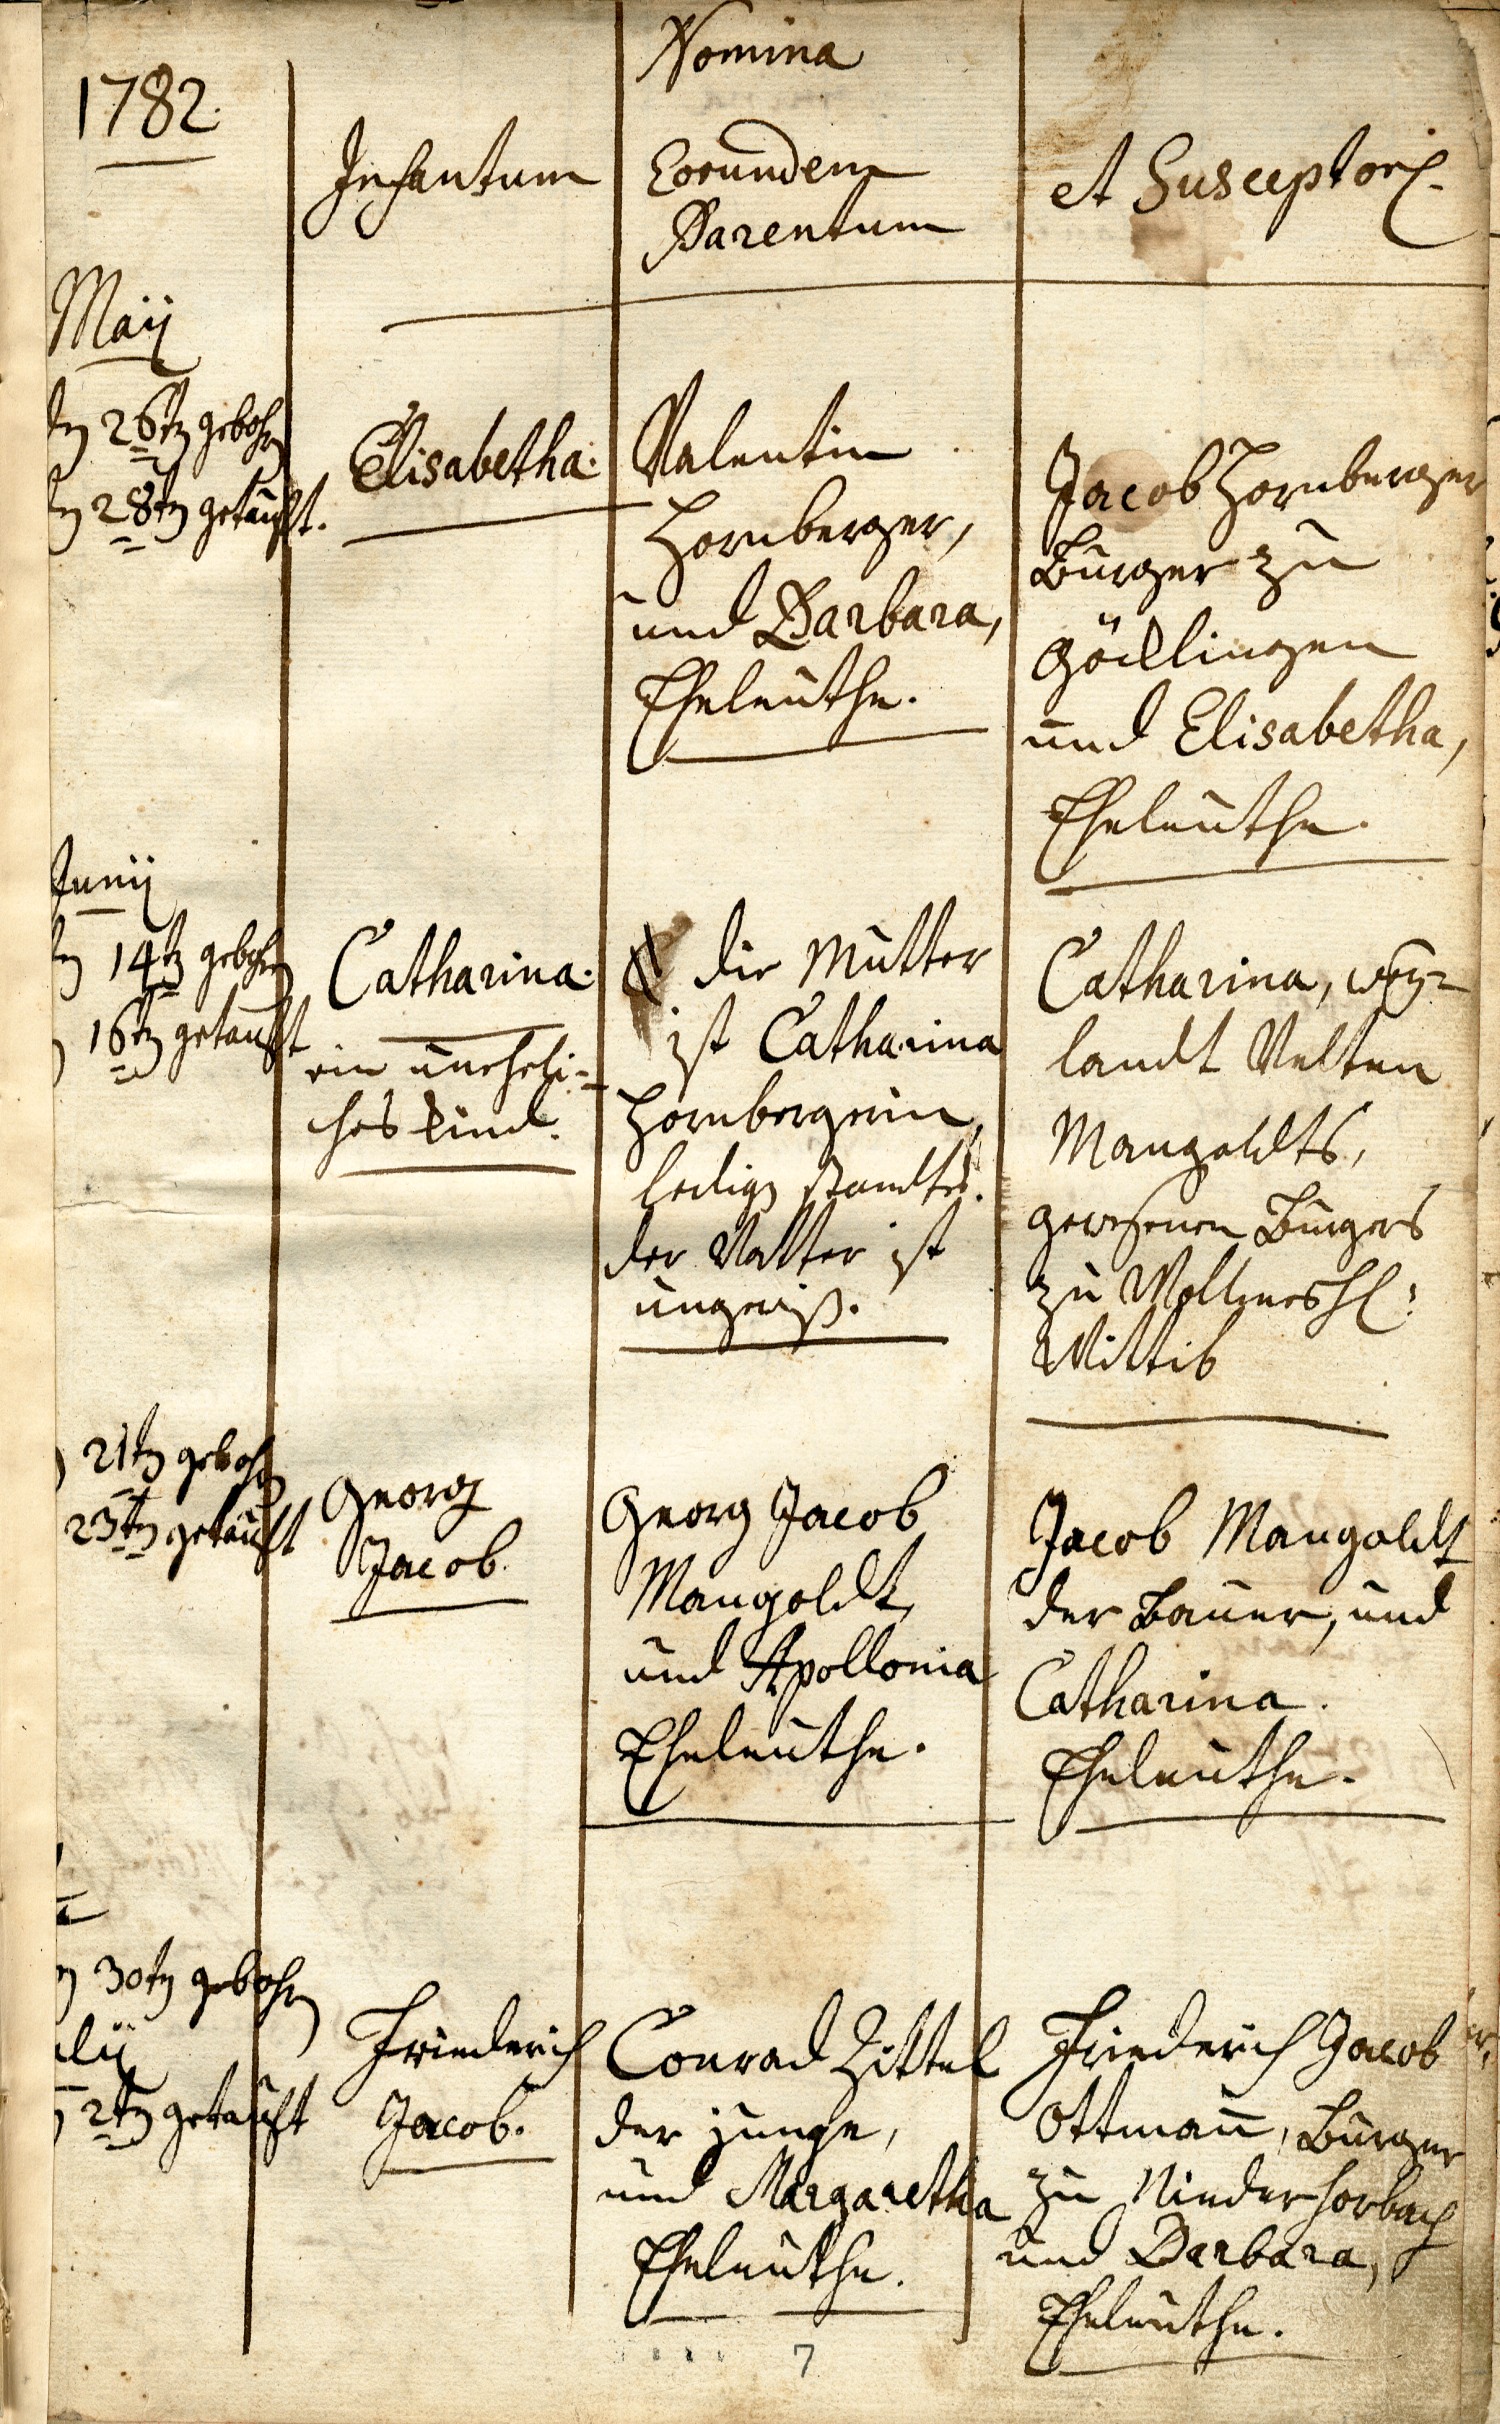 Nomina
1782.
Infantum
Eorundem
Parentum
et Susceptor
Maii
26tn gebohrn
28tn getaufft.
Elisabetha.
Valentin
Hornberger,
und Barbara,
Eheleuthe.
Jacob Hornberger
Burger zu
Göcklingen
und Elisabetha,
Eheleuthe.
Junii
14tn gebohrn
16tn getaufft
Catharina.
ein uneheli-
ches kind.
die Mutter
ist Catharina
Hornbergerin,
ledign standtes.
der Vatter ist
ungewiß.
Catharina, wey-
landt Velten
Mangoldts,
gewesenen Burgers
zu Wollmesh:
Wittib
21tn gebohrn
23tn getaufft
Georg
Jacob.
Georg Jacob
Mangoldt,
und Apollonia
Eheleuthe.
Jacob Mangoldt
der Bauer, und
Catharina.
Eheleuthe.
30tn gebohrn
ulii
2tn getaufft
Friederich
Jacob.
Conrad Zittel
der junge,
und Margaretha
Eheleuthe.
Friederich Jacob
Ottmañ, Burger
zu Niederhorbach
und Barbara,
Eheleuthe.
7